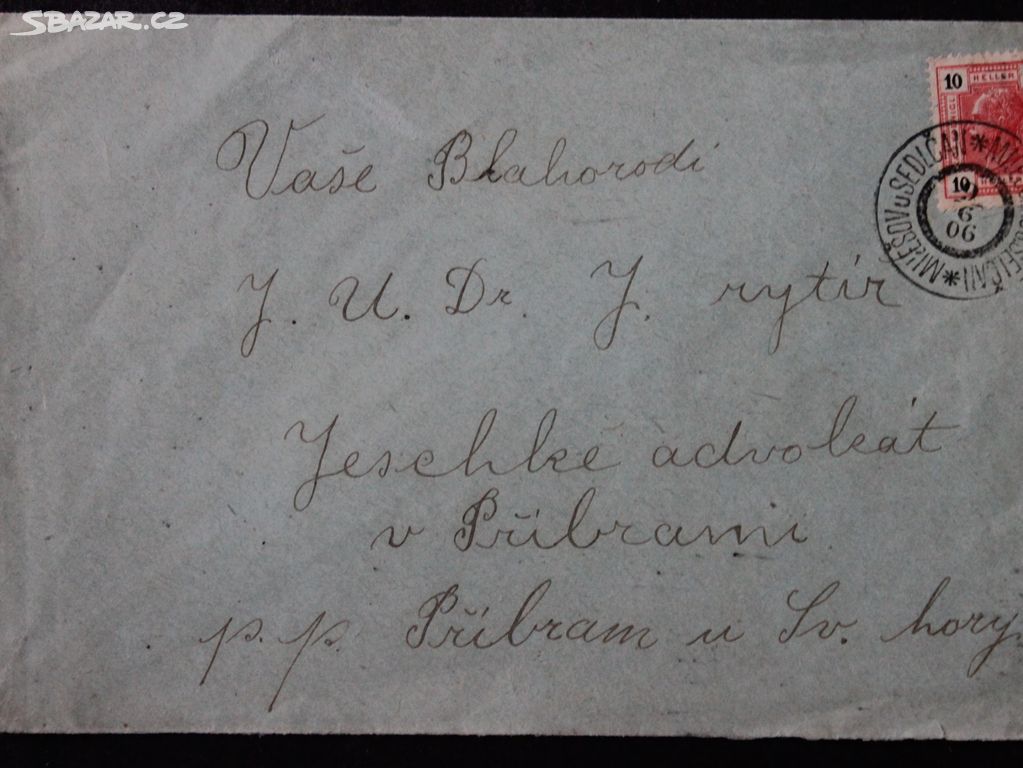 SBAZAR.CZ
10 HELLER
10
MILEŠOV u SEDLČAN * MIL
9
6
06
Vaše Blahorodí
J. U. Dr. J. rytíř
Jeschke advokát
v Příbrami
p. p. Příbram u Sv. hory